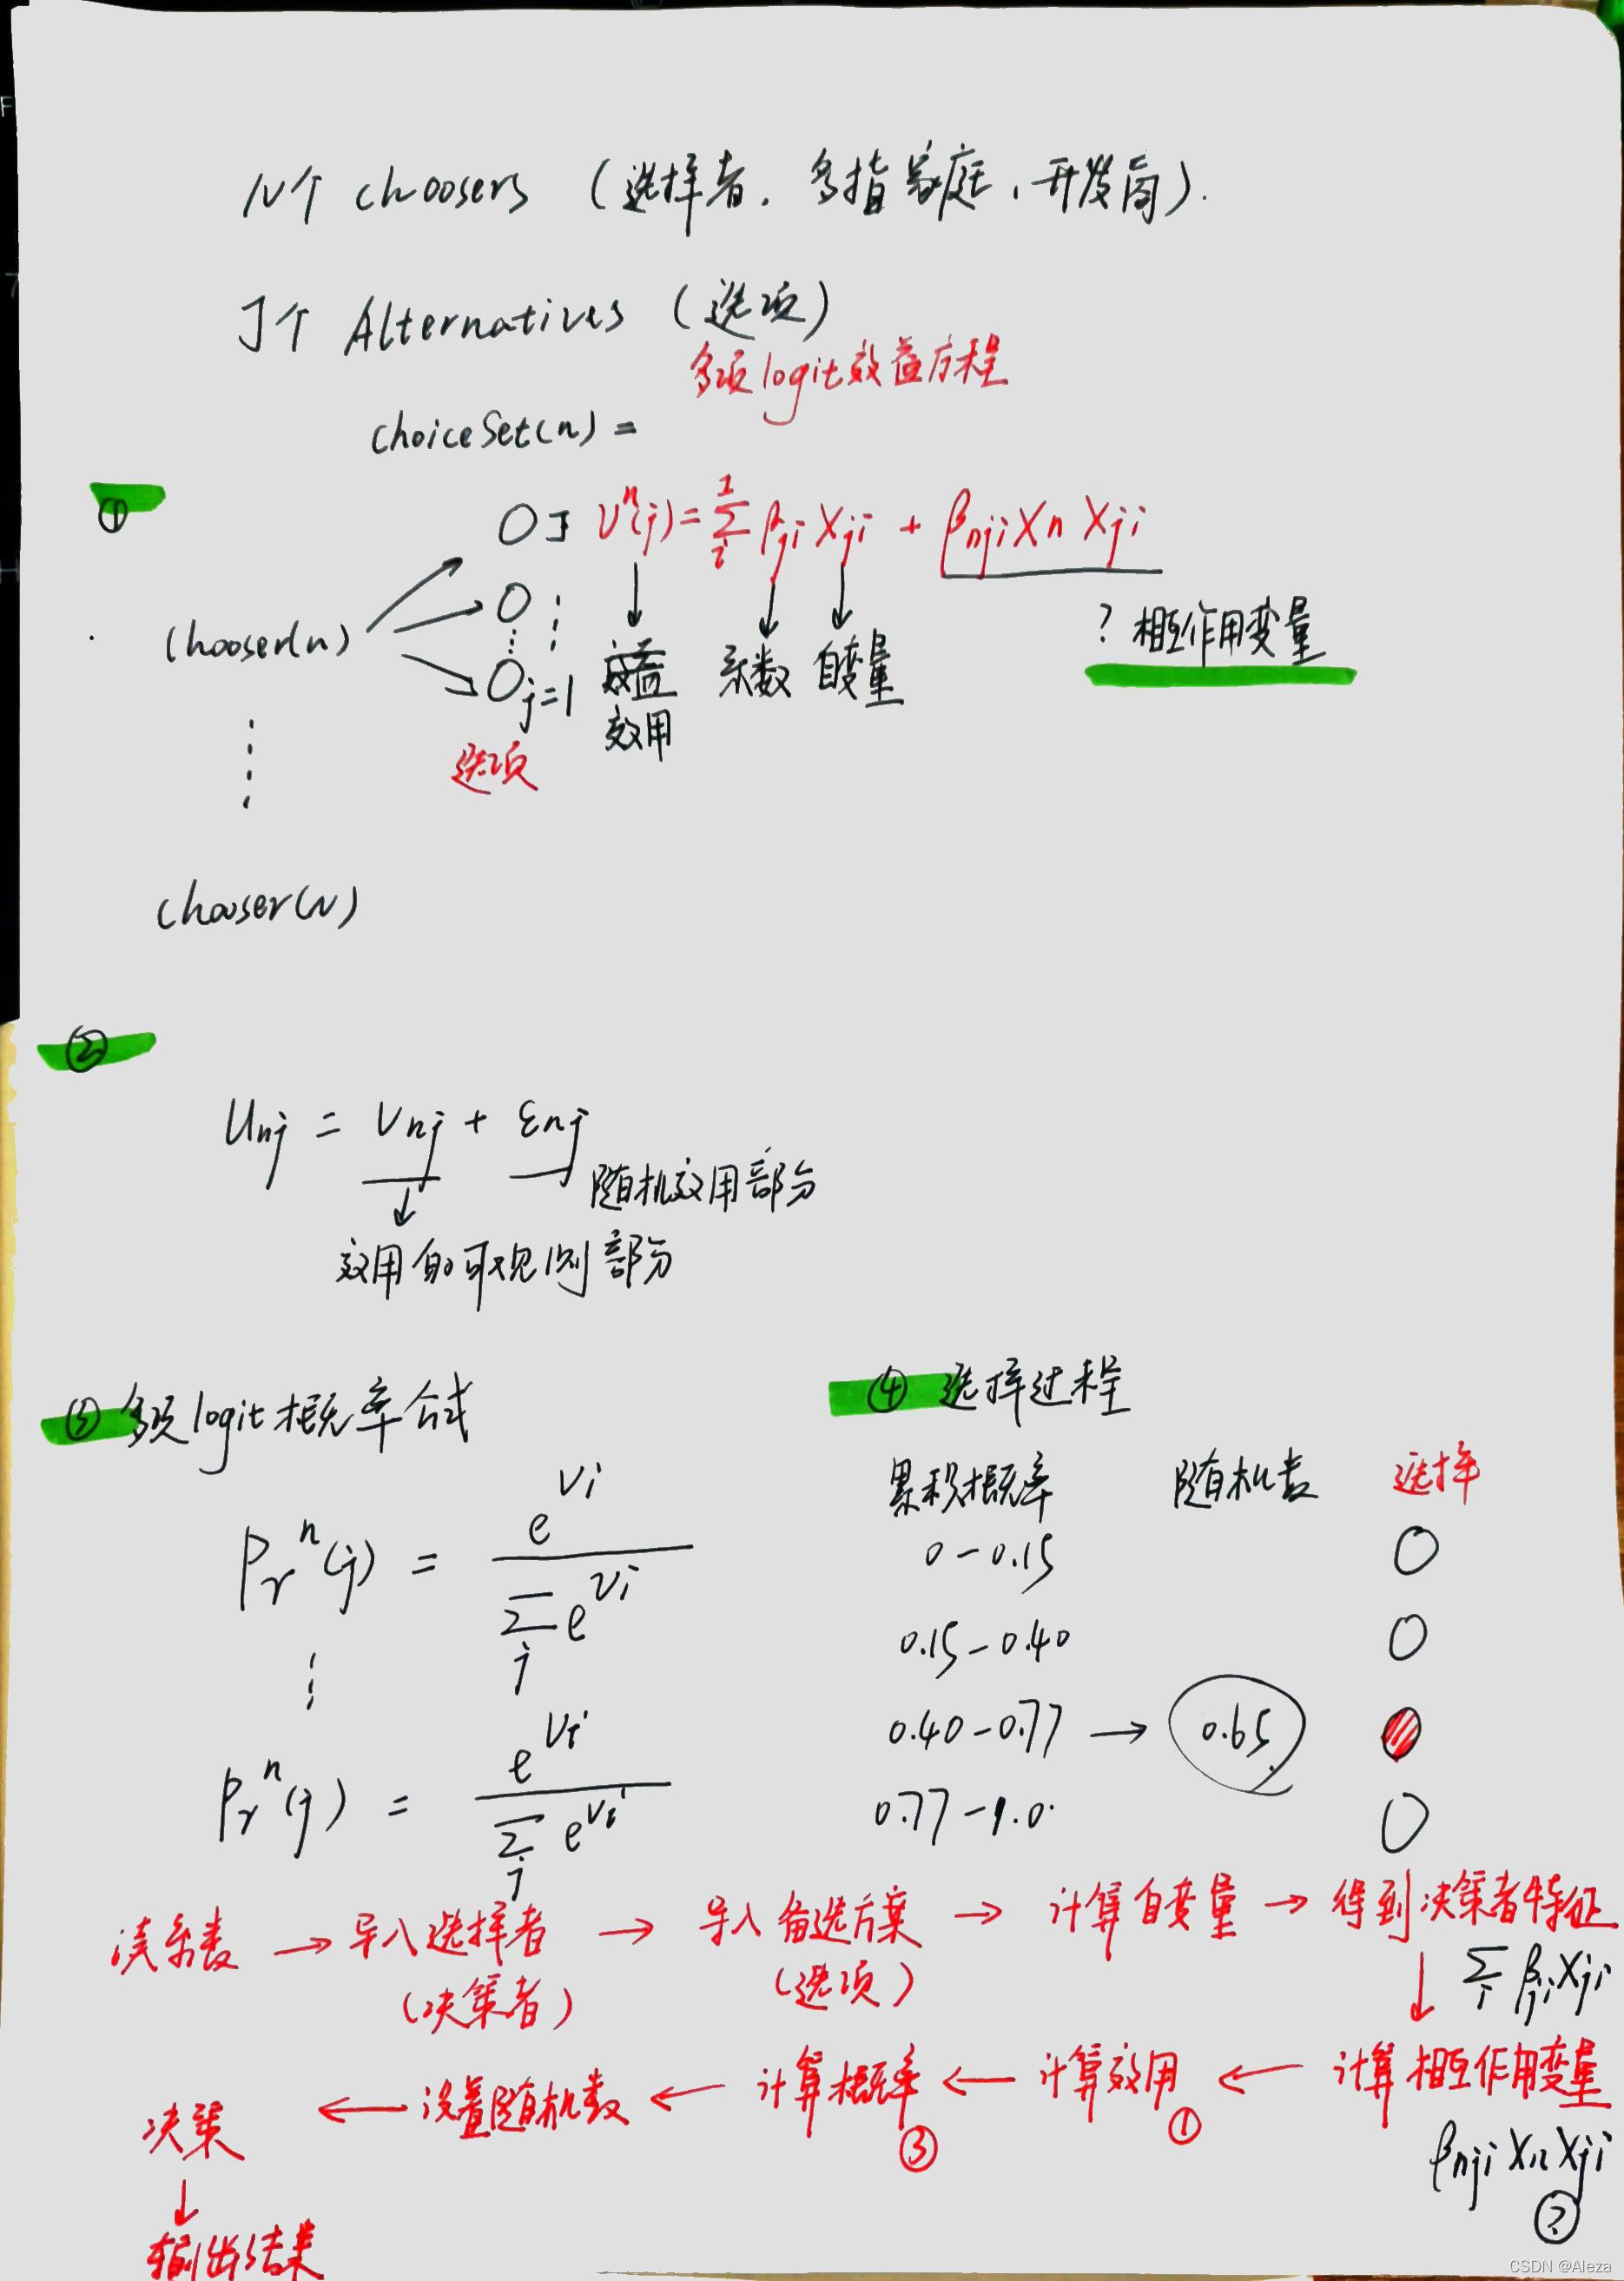 N个 choosers (选择者, 多指家庭、开发商).
J个 Alternatives (选项)
多项logit效益方程
choiceSet(n) =
①
J V^n(j) = Σ_i^I β_ji X_ji + β_nji X_n X_ji
chooser(n)
j=1
效用 系数 自变量
? 相互作用变量
选项
chooser(N)
②
U_nj = V_nj + ε_nj
随机效用部分
效用的可观测部分
③ 多项logit概率公式
P_r^n(j) = e^{Vi} / Σ_j e^{Vi}
P_r^n(j) = e^{Vi} / Σ_j e^{Vi}
④ 选择过程
累积概率 随机数 选择
0-0.15
0.15-0.40
0.40-0.77 → 0.65
0.77-1.0
读系数 → 导入选择者 → 导入备选方案 → 计算自变量 → 得到决策者特征
(决策者) (选项) ↓ Σ_i β_ji X_ji
决策 ← 设置随机数 ← 计算概率 ← 计算效用 ← 计算相互作用变量
③ ① β_nji X_n X_ji
?
↓
输出结果
CSDN @Aleza